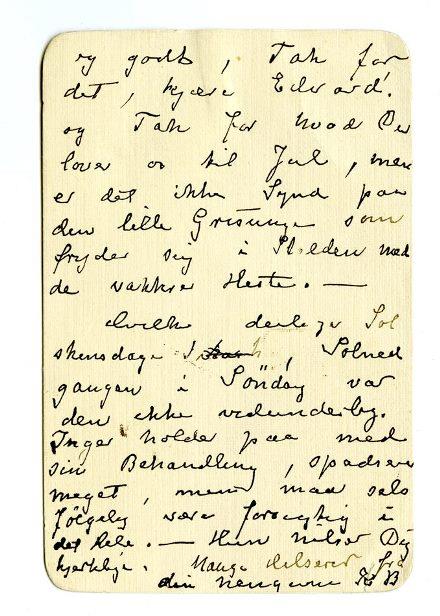 og godt, Tak for
det, kjære Edvard!
og Tak for hvad Der
lover os til Jul, men
er det ikke Synd paa
den lille Grisunge som
fryder sig i Stalden med
de vakkre Heste. —
Hvilke deilige Sol
skinsdage I, Solned
gangen i Söndag var
den ikke vidunderlig.
Inger holder paa med
sin Behandling, spadserer
meget, men maa selv
følgelig være forsigtig i
det Hele. — Hun hilser Dig
hjerteligt. Mange Hilsener fra
din hengivne B